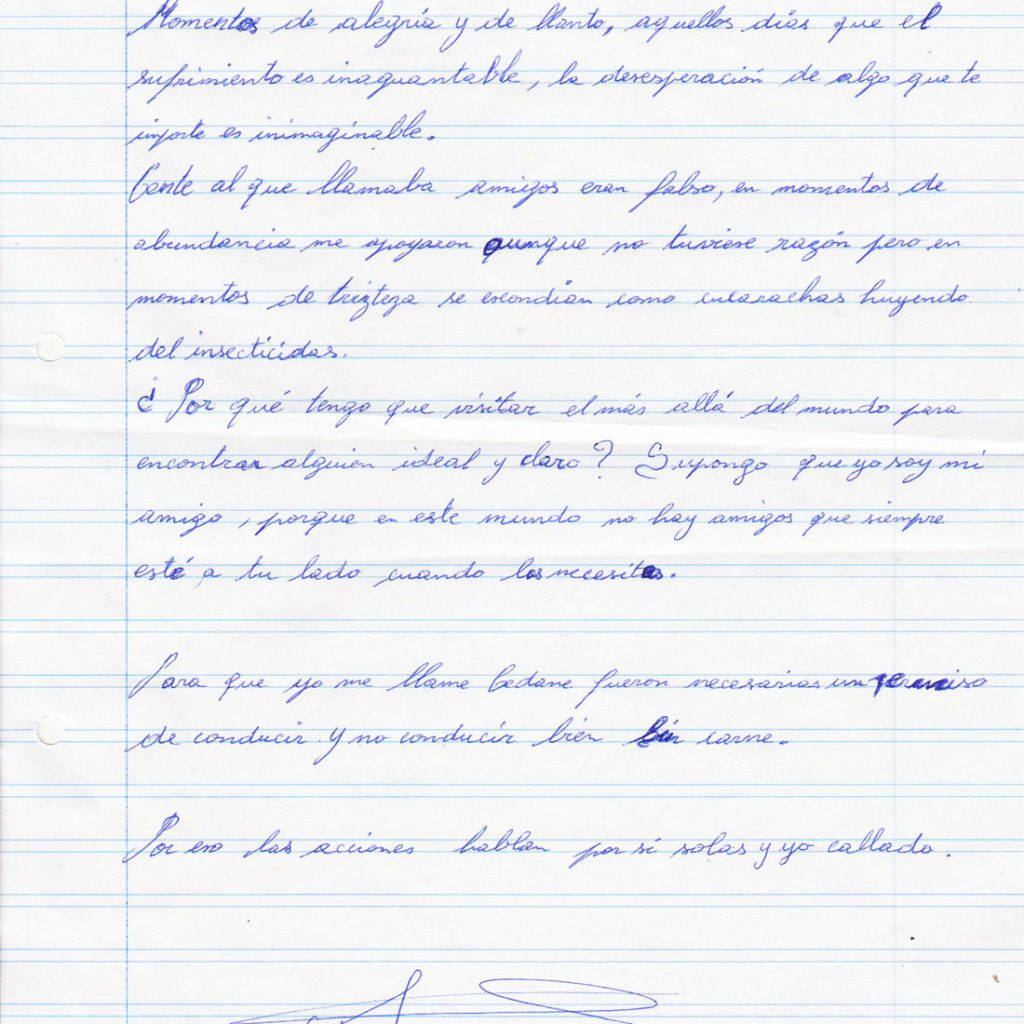 Momentos de alegría y de llanto, aquellos días que el
sufrimiento es inaguantable, la desesperación de algo que te
importe es inimaginable.
Gente al que llamaba amigos eran falso, en momentos de
abundancia me apoyaron aunque no tuviese razón pero en
momentos de trizteza se escondían como cucarachas huyendo
del insecticidas.
¿Por qué tengo que visitar el más allá del mundo para
encontrar alguien ideal y claro? Supongo que yo soy mi
amigo, porque en este mundo no hay amigos que siempre
esté a tu lado cuando los necesitas.
Para que yo me llame fueron necesarias un permiso
de conducir y no conducir bien carne.
Por eso las acciones hablan por sí solas y yo callado.